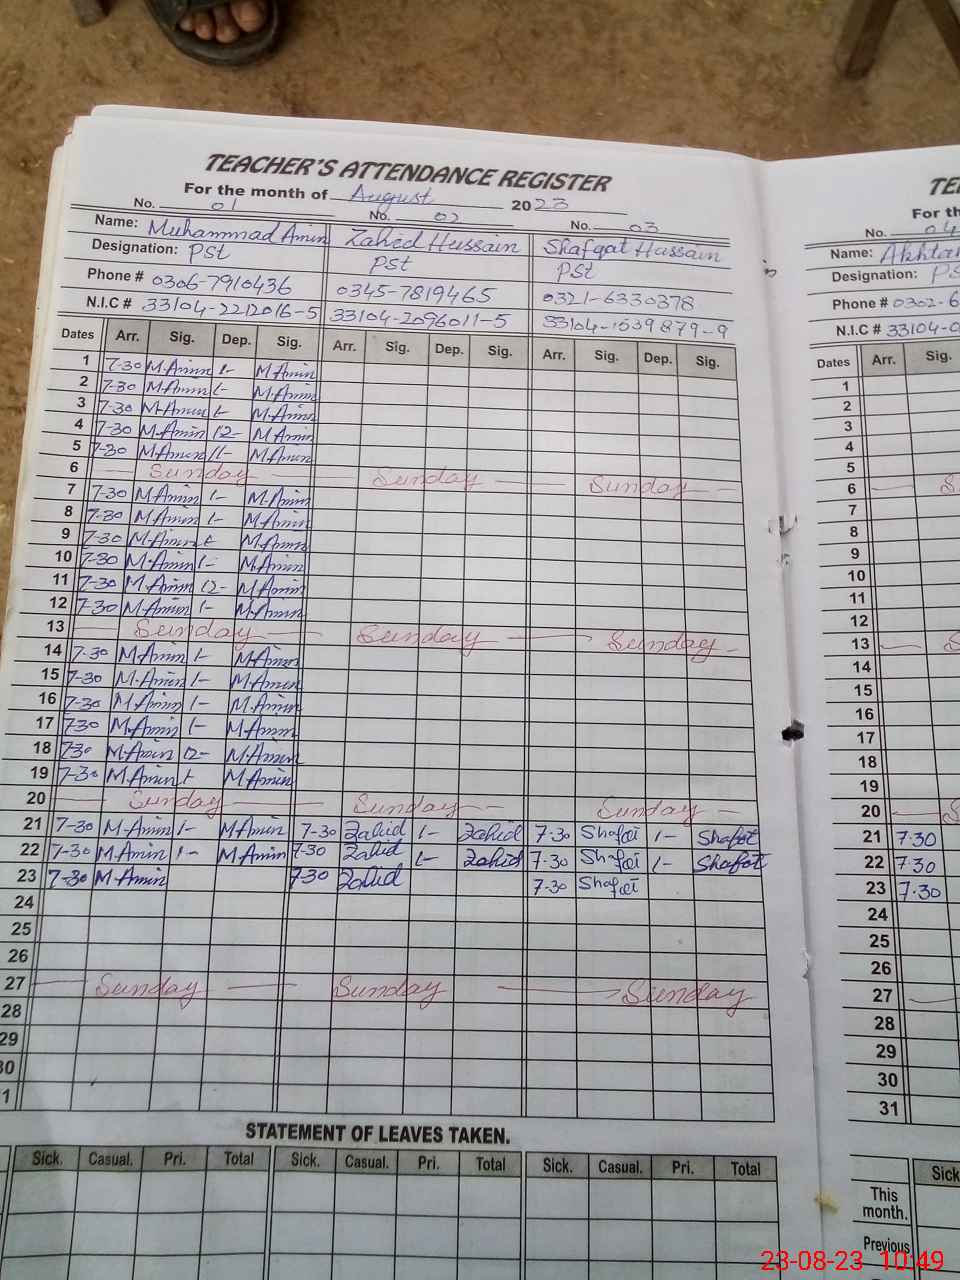 TEACHER'S ATTENDANCE REGISTER
For the month of August 2023
No. 01 No. 02 No. 03
Name: Muhammad Amin Zahid Hussain Shafqat Hussain
Designation: PSt PSt PSt
Phone # 0306-7910436 0345-7819465 0321-6330378
N.I.C # 33104-2212016-5 33104-2096011-5 33104-1539879-9
Dates Arr. Sig. Dep. Sig. Arr. Sig. Dep. Sig. Arr. Sig. Dep. Sig.
1 7-30 M.Amin 1- M.Amin
2 7-30 M.Amin 1- M.Amin
3 7-30 M.Amin 1- M.Amin
4 7-30 M.Amin 12- M.Amin
5 7-30 M.Amin 1- M.Amin
6 Sunday Sunday Sunday
7 7-30 M.Amin 1- M.Amin
8 7-30 M.Amin 1- M.Amin
9 7-30 M.Amin 1- M.Amin
10 7-30 M.Amin 1- M.Amin
11 7-30 M.Amin 12- M.Amin
12 7-30 M.Amin 1- M.Amin
13 Sunday Sunday Sunday
14 7-30 M.Amin 1- M.Amin
15 7-30 M.Amin 1- M.Amin
16 7-30 M.Amin 1- M.Amin
17 7-30 M.Amin 1- M.Amin
18 7-30 M.Amin 12- M.Amin
19 7-30 M.Amin 1- M.Amin
20 Sunday Sunday Sunday
21 7-30 M.Amin 1- M.Amin 7-30 Zahid 1- Zahid 7-30 Shafqt 1- Shafqt
22 7-30 M.Amin 1- M.Amin 7-30 Zahid 1- Zahid 7-30 Shafqt 1- Shafqt
23 7-30 M.Amin 7-30 Zahid 7-30 Shafqt
24
25
26
27 Sunday Sunday Sunday
28
29
30
1
STATEMENT OF LEAVES TAKEN.
Sick. Casual. Pri. Total Sick. Casual. Pri. Total Sick. Casual. Pri. Total
TE
For th
No. 04
Name: Akhtar
Designation: PS
Phone # 0302-6
N.I.C # 33104-0
Dates Arr. Sig.
1
2
3
4
5
6 S
7
8
9
10
11
12
13 S
14
15
16
17
18
19
20 S
21 7.30
22 7.30
23 7.30
24
25
26
27
28
29
30
31
Sick
This month.
Previous
23-08-23 10:49